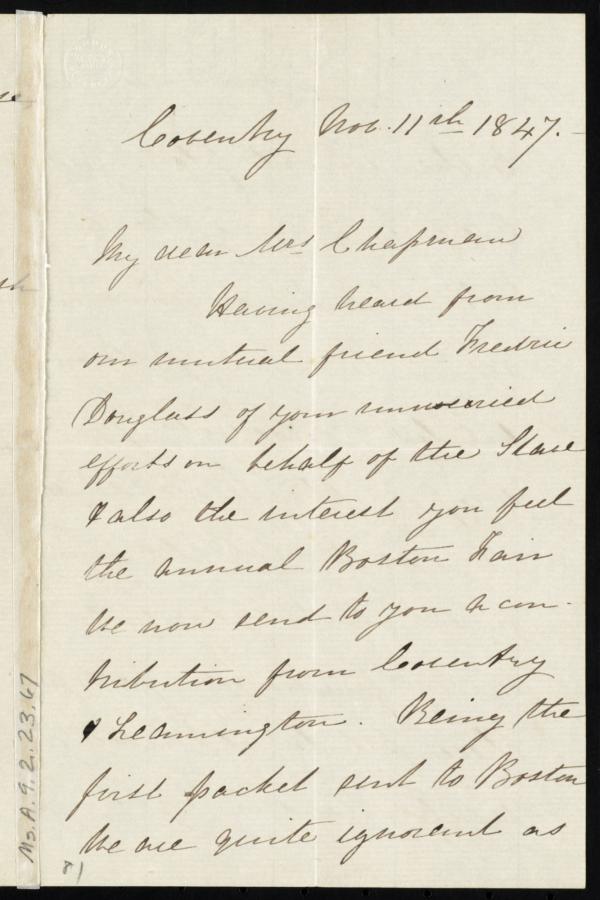 Coventry Nov. 11th 1847.
My dear Mrs Chapman
Having heard from
our mutual friend Fredric
Douglass of your unwearied
efforts on behalf of the Slave
& also the interest you feel
the annual Boston Fair
We now send to you a con-
tribution from Coventry
& Leamington. Being the
first packet sent to Boston
We are quite ignorant as
Ms. A. 9. 2. 23. 67